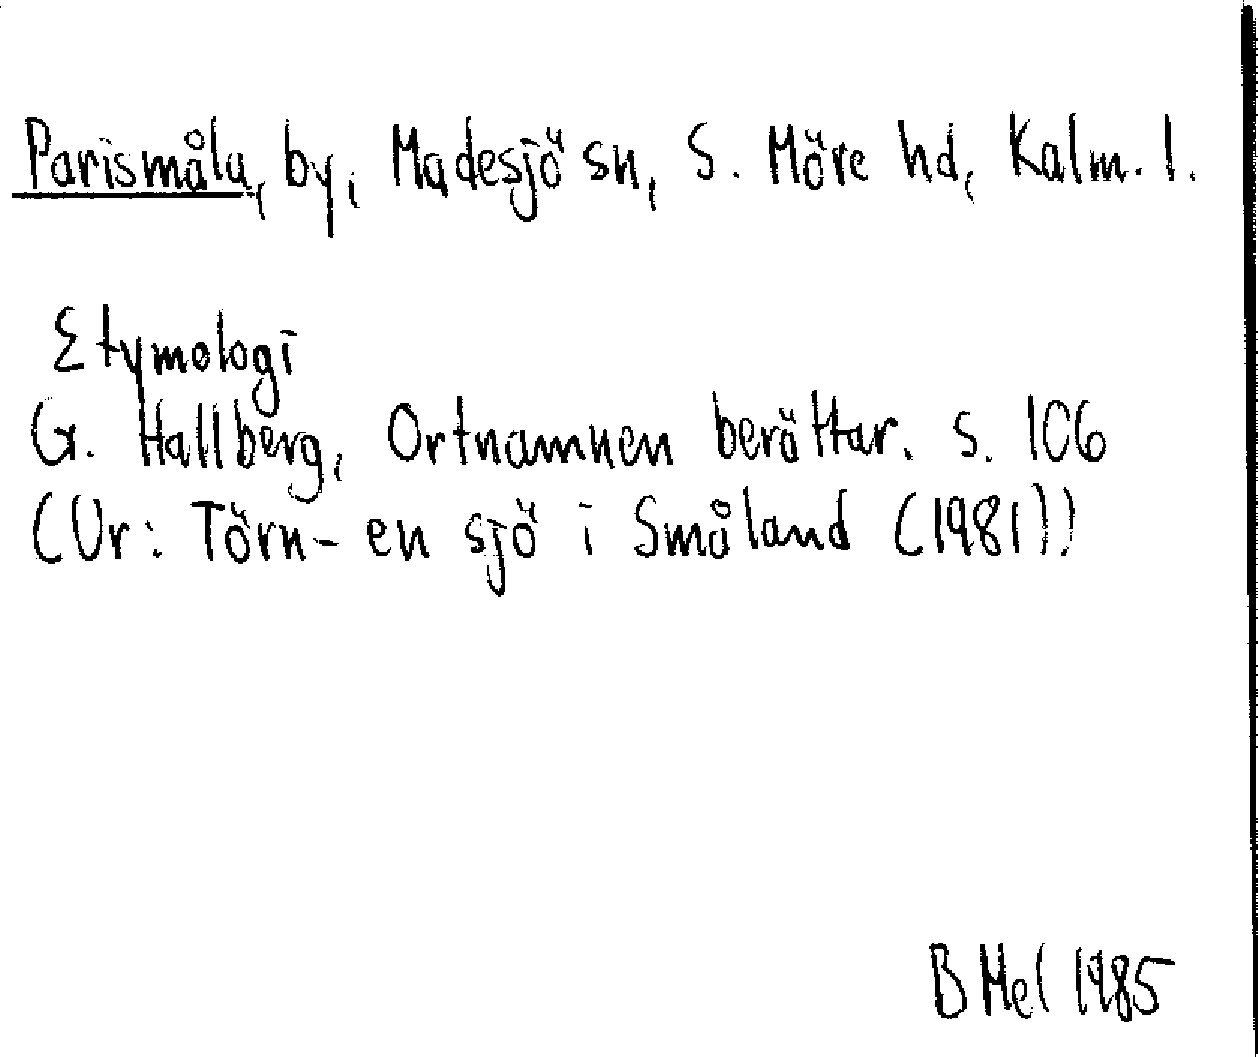 Parismåla, by, Madesjö sn, S. Möre hd, Kalm. l.
Etymologi
G. Hallberg, Ortnamnen berättar. s. 106
(Ur: Törn - en sjö i Småland (1981))
B Mel 1985